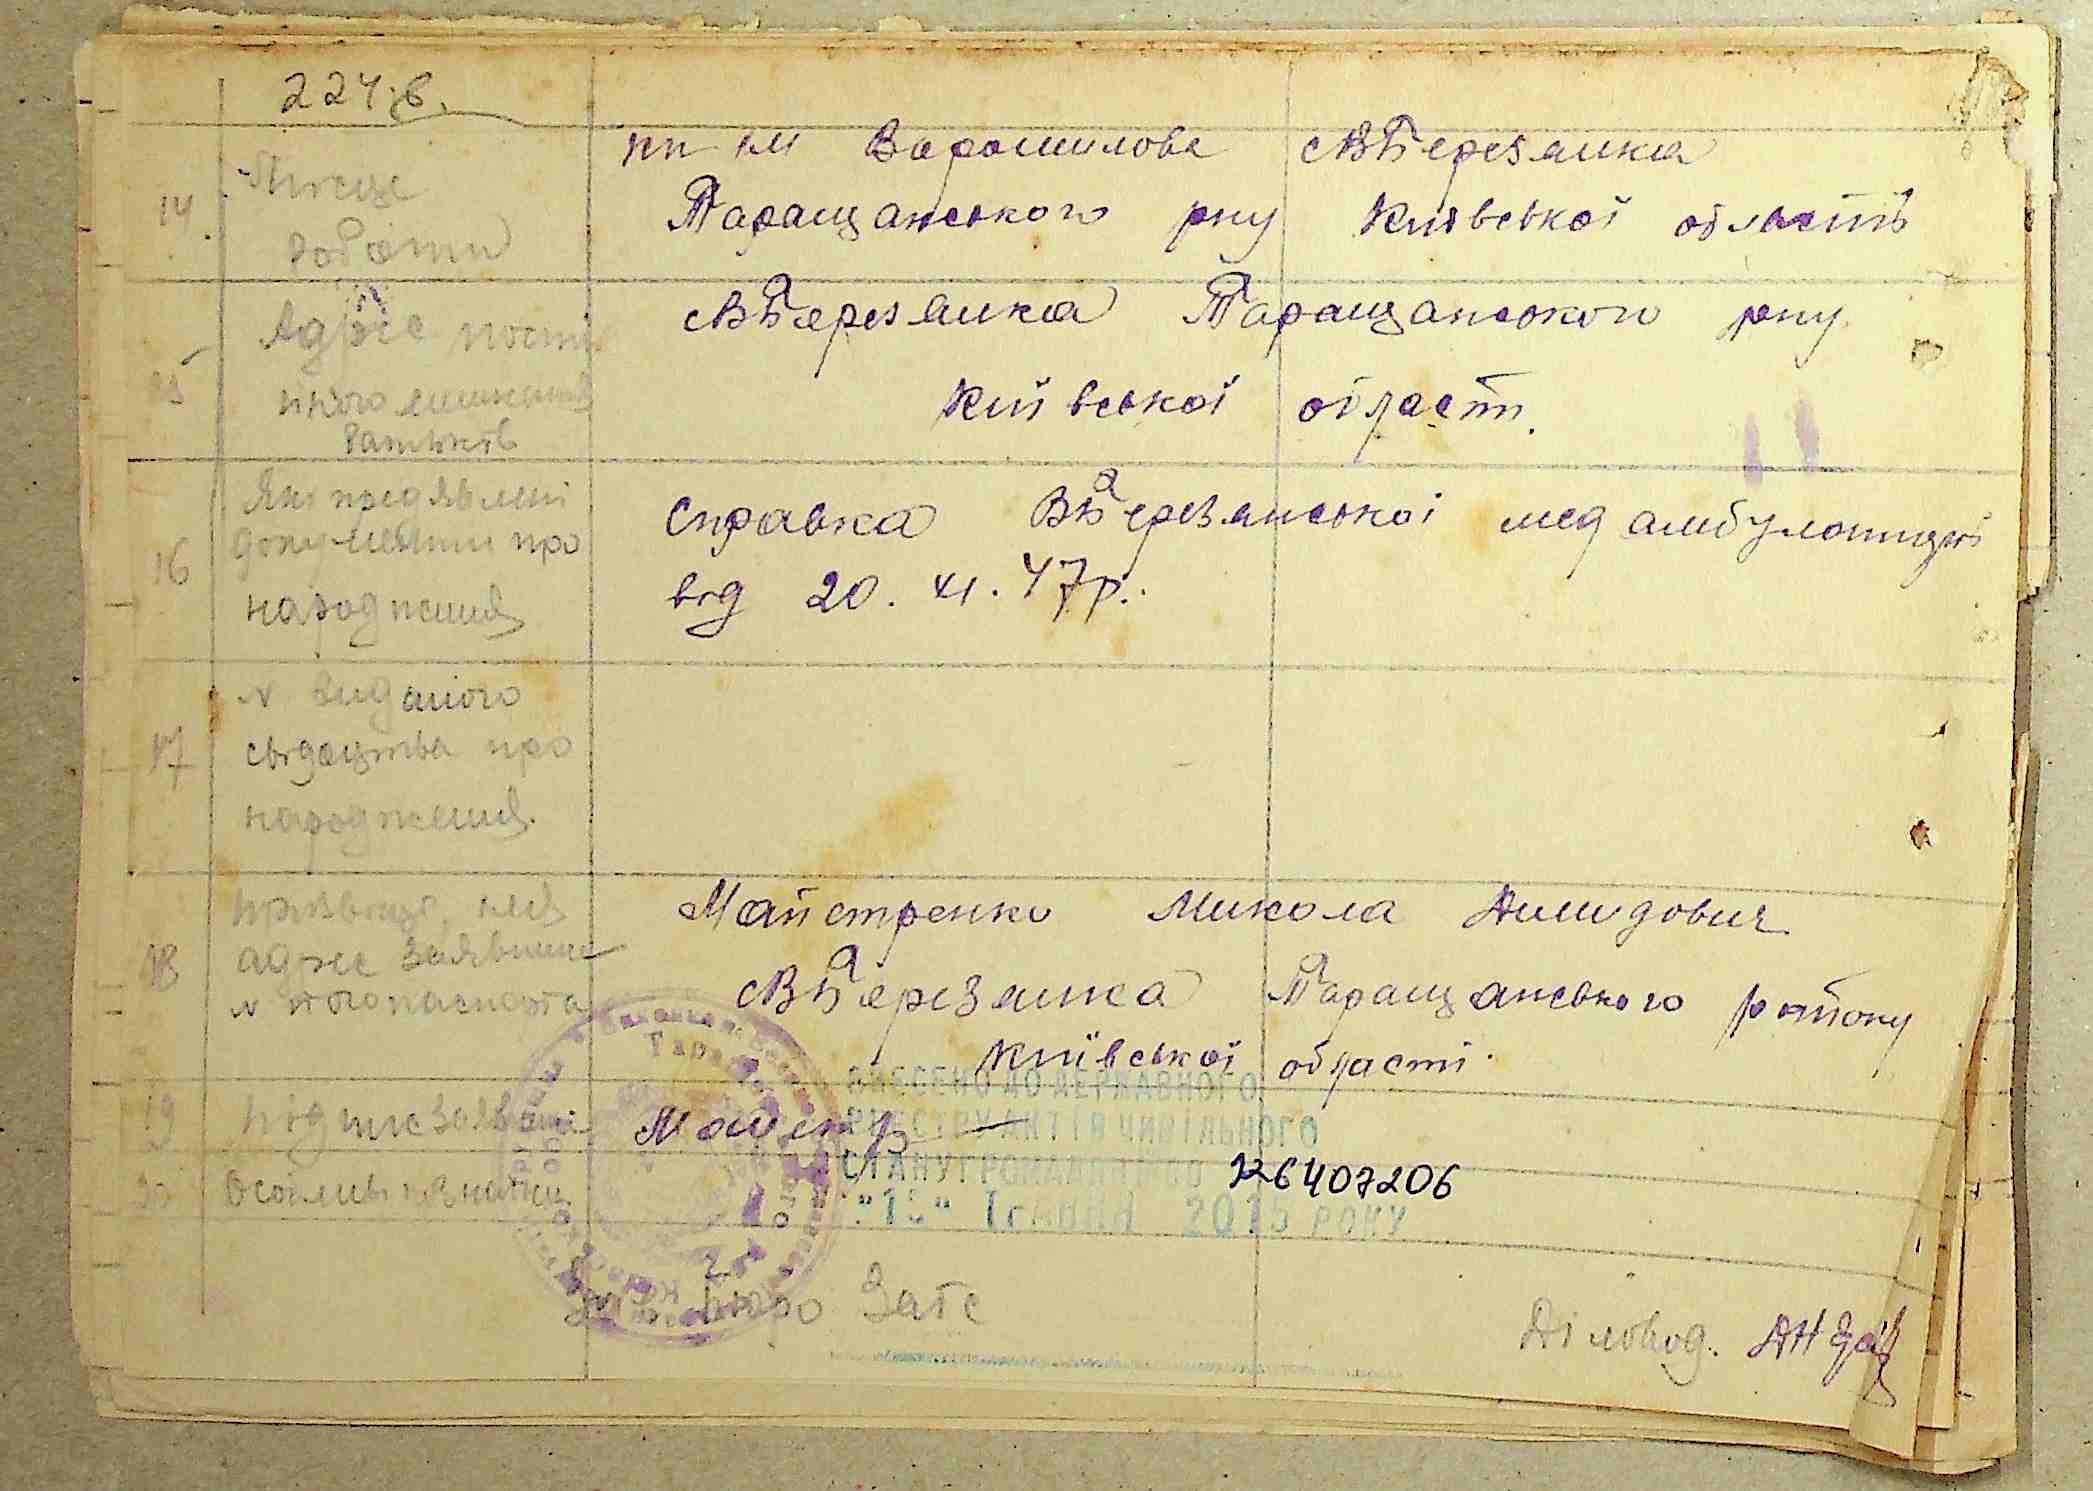 224 зв.
14 Місце
роботи
кп ім Ворошилова с В Березянка
Таращанського рну Київської область
15 Адрес постій
ного мешкання
батьків
с В Березянка Таращанського рну
Київської област.
16 Які предявлені
документи про
народження
Справка В Березянської мед амбулоторії
від 20. XI. 47р.
17 № виданого
свідоцтва про
народження.
18 прізвище, імя
адрес заявника
№ його паспорта
Майстренко Микола Демидович
с В Березянка Таращанського району
Київської області.
19 підпис заявника
20 Особливі познатки
ВНЕСЕНО ДО ДЕРЖАВНОГО
РЕЄСТРУ АКТІВ ЦИВІЛЬНОГО
СТАНУ ГРОМАДЯН ЗА № 126407206
2015 РОКУ
бюро Загс
Діловод.